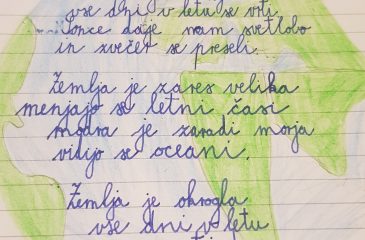 vse dni v letu se vrti
Sonce daje nam svetlobo
in zvečer se preseli.
Zemlja je zares velika
menjajo se letni časi
modra je zaradi morja
vidijo se oceani.
Zemlja je okrogla
vse dni v letu